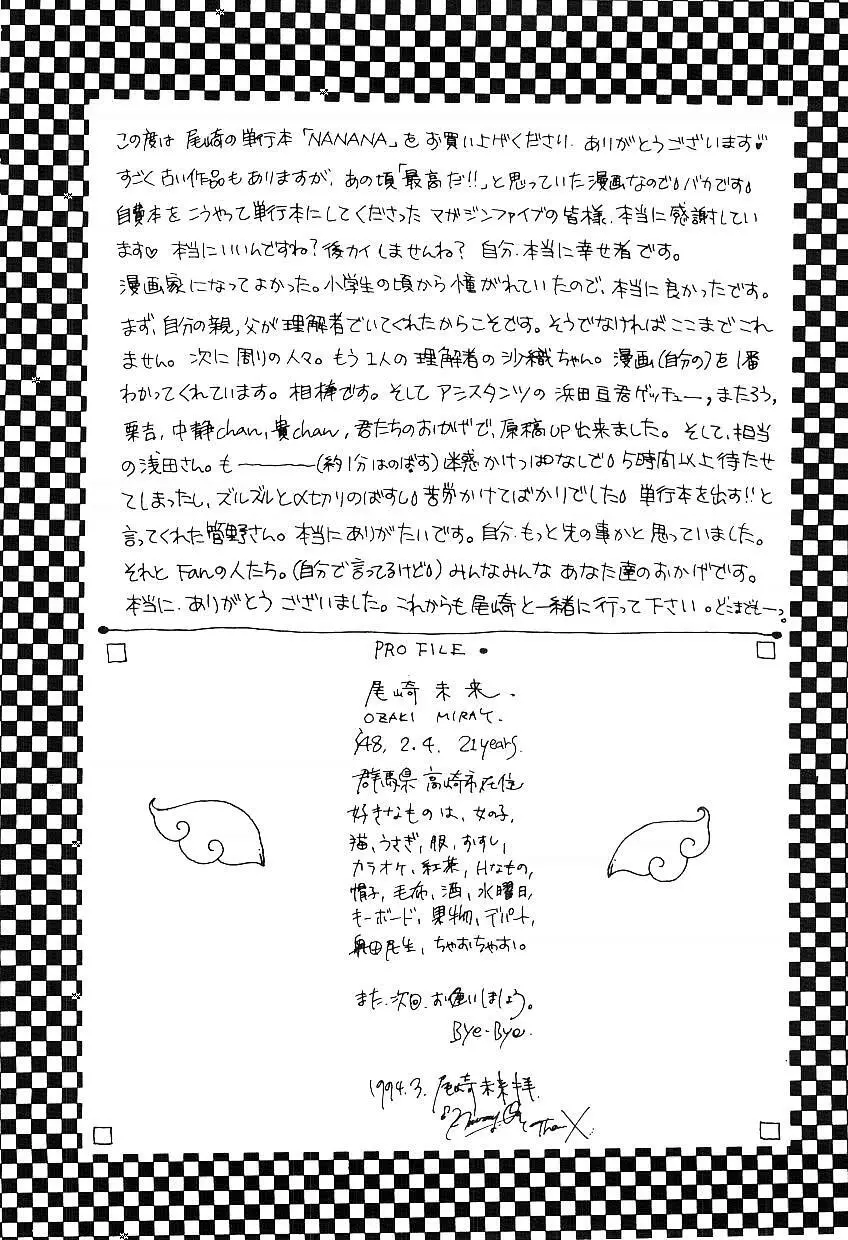 この度は 尾崎の単行本「NANANA」を お買い上げくださり、ありがとうございます♥
すごく古い作品もありますが、あの頃「最高だ!!」と思っていた漫画なので、バカです。
自費本を こうやって単行本にしてくださった マガジンファイブの皆様、本当に感謝してい
ます♡ 本当にいいんですね?後カイしませんね? 自分、本当に幸せ者です。
漫画家になってよかった。小学生の頃から憧がれていたので、本当に良かったです。
まず、自分の親。父が理解者でいてくれたからこそです。そうでなければここまでこれ
ません。次に周りの人々。もう1人の理解者の沙織ちゃん。漫画(自分の)を1番
わかってくれています。相棒です。そして アシスタンツの 浜田亘君ゲッチュー, またろう,
栗吉, 中静chan, 貴chan, 君たちのおかげで、原稿UP出来ました。そして、担当
の浅田さん。も———(約1分はのばす)迷惑かけっぱなしで。5時間以上待たせ
てしまったし、ズルズルと〆切りのばすし。苦労かけてばかりでした。単行本を出す!!と
言ってくれた菅野さん。本当にありがたいです。自分、もっと先の事かと思っていました。
それと Fanの人たち。(自分で言ってるけど。)みんなみんな あなた達のおかげです。
本当に、ありがとう ございました。これからも尾崎と一緒に行って下さい。どこまでもーっ。
PRO FILE •
尾崎 未来.
OZAKI MIRAY.
'48, 2.4. 21years.
群馬県高崎市在住
好きなものは、女の子,
猫, うさぎ, 服, おすし,
カラオケ, 紅茶, Hなもの,
帽子, 毛布, 酒, 水曜日,
キーボード, 果物, デパート,
奥田民生, ちゃおちゃお。
また、次回、お逢いしましょう。
Bye-Bye.
1994.3. 尾崎未来拝.
The X